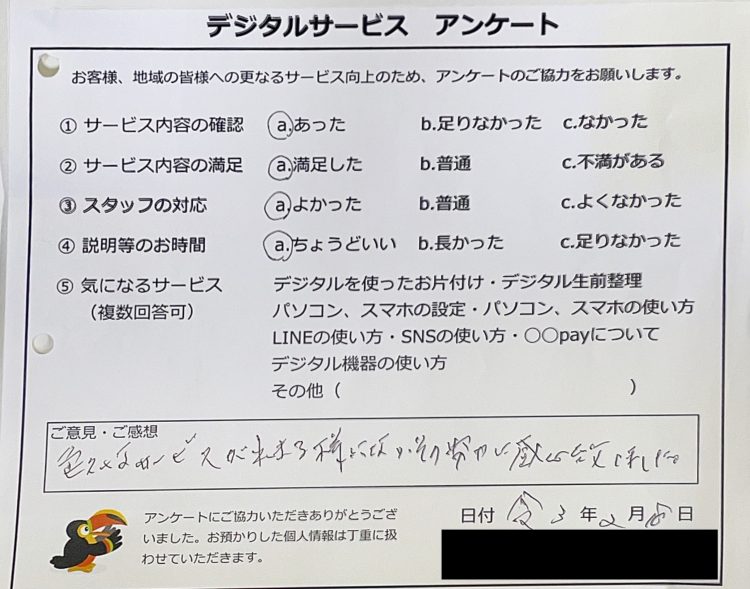 デジタルサービス　アンケート
お客様、地域の皆様への更なるサービス向上のため、アンケートのご協力をお願いします。
① サービス内容の確認　a.あった　b.足りなかった　c.なかった
② サービス内容の満足　a.満足した　b.普通　c.不満がある
③ スタッフの対応　a.よかった　b.普通　c.よくなかった
④ 説明等のお時間　a.ちょうどいい　b.長かった　c.足りなかった
⑤ 気になるサービス　デジタルを使ったお片付け・デジタル生前整理
（複数回答可）　パソコン、スマホの設定・パソコン、スマホの使い方
LINEの使い方・SNSの使い方・〇〇payについて
デジタル機器の使い方
その他（　）
ご意見・ご感想
色々なサービスが
日付　令3年2月　日
アンケートにご協力いただきありがとうござ
いました。お預かりした個人情報は丁重に扱
わせていただきます。